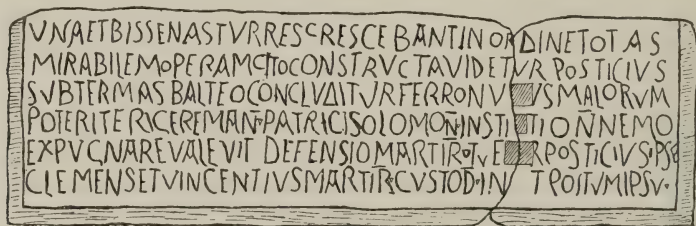 VNAETBISSENASTVRRESCRESCEBANTINORDINETOTAS
MIRABILEMOPERAMCITOCONSTRVCTAVIDETVRPOSTICIVS
SVBTERMASBALTEOCONCLVDITVRFERRONV VSMALORVM
POTERITERICEREMAN̅·PATRICISOLOMON̅·INSTI TION̅NEMO
EXPVGNAREVALEVIT DEFENSIOMARTIR̅·TVE RPOSTICIVSIPSE
CLEMENSETVINCENTIVSMARTIR̅·CVSTOD̅·IN TPOITVMIPSV·